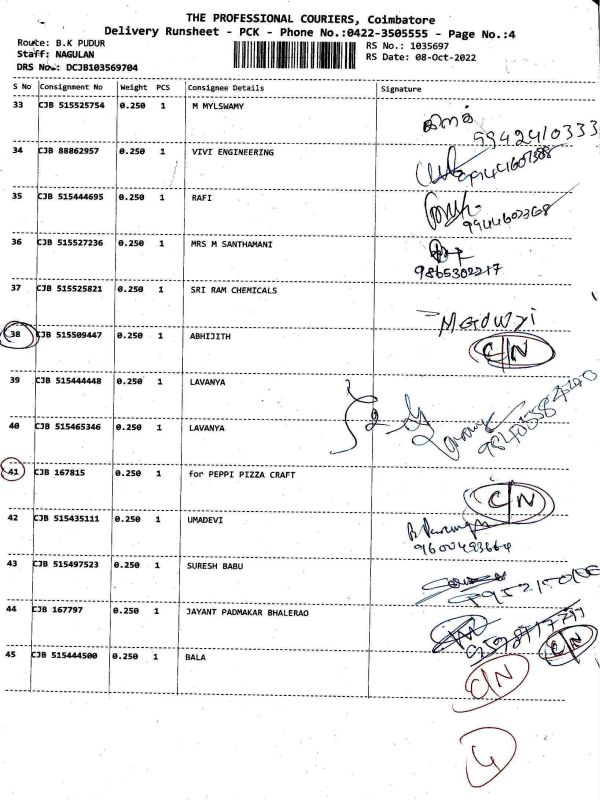 THE PROFESSIONAL COURIERS, Coimbatore
Delivery Runsheet - PCK - Phone No.:0422-3505555 - Page No.:4
Route: B.K PUDUR
RS No.: 1035697
Staff: NAGULAN
RS Date: 08-Oct-2022
DRS No.: DCJB103569704
S No Consignment No Weight PCS Consignee Details Signature
33 CJB 515525754 0.250 1 M MYLSWAMY
9942410333
34 CJB 88862957 0.250 1 VIVI ENGINEERING
35 CJB 515444695 0.250 1 RAFI
9944602368
36 CJB 515527236 0.250 1 MRS M SANTHAMANI
9865302217
37 CJB 515525821 0.250 1 SRI RAM CHEMICALS
38 CJB 515509447 0.250 1 ABHIJITH
C/N
39 CJB 515444448 0.250 1 LAVANYA
40 CJB 515465346 0.250 1 LAVANYA
41 CJB 167815 0.250 1 for PEPPI PIZZA CRAFT
C/N
42 CJB 515435111 0.250 1 UMADEVI
9600493664
43 CJB 515497523 0.250 1 SURESH BABU
44 CJB 167797 0.250 1 JAYANT PADMAKAR BHALERAO
C/N
45 CJB 515444500 0.250 1 BALA
C/N
4